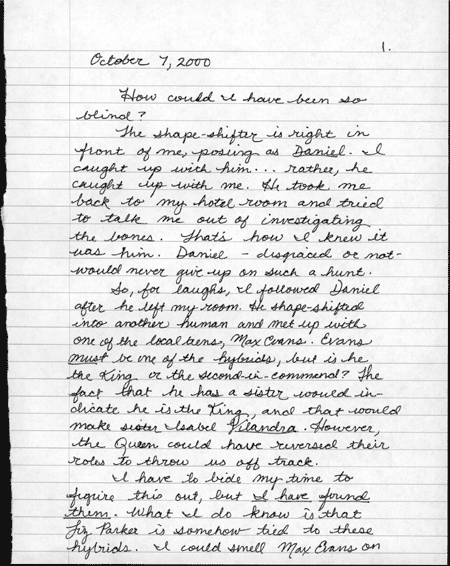 1.
October 7, 2000
How could I have been so
blind?
The shape-shifter is right in
front of me, posing as Daniel. I
caught up with him... rather, he
caught up with me. He took me
back to my hotel room and tried
to talk me out of investigating
the bones. That's how I knew it
was him. Daniel - disgraced or not-
would never give up on such a hunt.
So, for laughs, I followed Daniel
after he left my room. He shape-shifted
into another human and met up with
one of the local teens, Max Evans. Evans
must be one of the hybrids, but is he
the King or the second-in-command? The
fact that he has a sister would in-
dicate he is the King, and that would
make sister Isabel Vilandra. However,
the Queen could have reversed their
roles to throw us off track.
I have to bide my time to
figure this out, but I have found
them. What I do know is that
Liz Parker is somehow tied to these
hybrids. I could smell Max Evans on